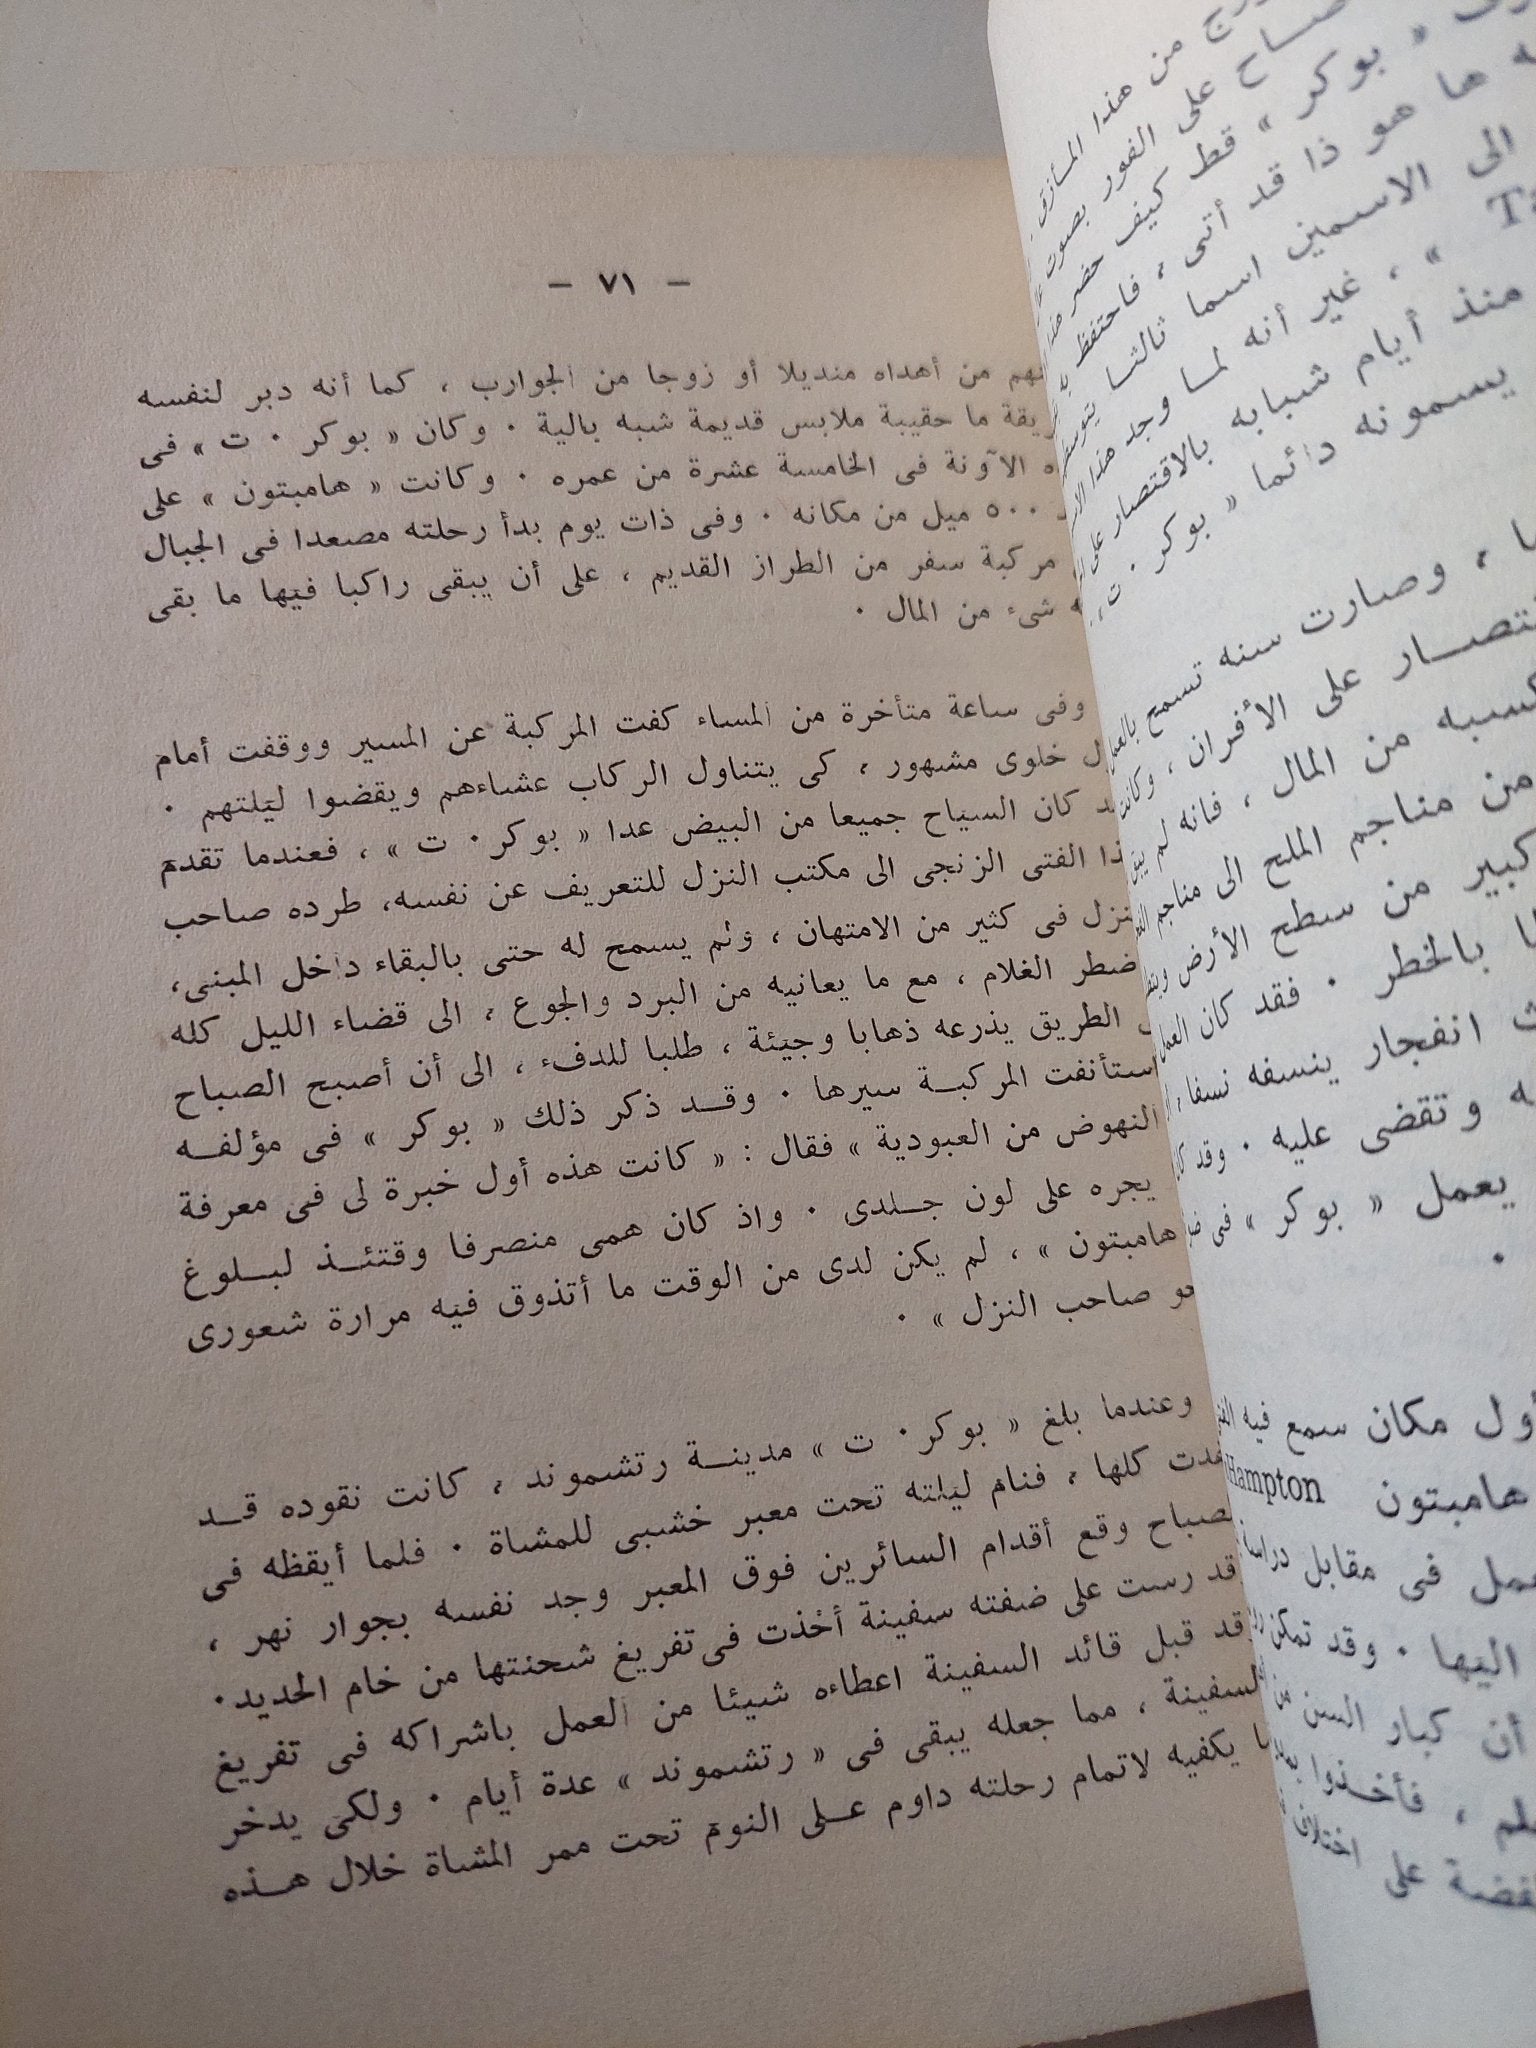 - ٧١ -
من أهداه منديلا أو زوجا من الجوارب ، كما أنه دبر لنفسه
ما حقيبة ملابس قديمة شبه بالية · وكان « بوكر · ت » فى
الآونة فى الخامسة عشرة من عمره · وكانت « هامبتون » على
٥٠٠ ميل من مكانه · وفى ذات يوم بدأ رحلته مصعدا فى الجبال
مركبة سفر من الطراز القديم ، على أن يبقى راكبا فيها ما بقى
شىء من المال ·
وفى ساعة متأخرة من المساء كفت المركبة عن المسير ووقفت أمام
خلوى مشهور ، كى يتناول الركاب عشاءهم ويقضوا ليلتهم ·
كان السياح جميعا من البيض عدا « بوكر · ت » ، فعندما تقدم
الفتى الزنجى الى مكتب النزل للتعريف عن نفسه، طرده صاحب
فى كثير من الامتهان ، ولم يسمح له حتى بالبقاء داخل المبنى،
الغلام ، مع ما يعانيه من البرد والجوع ، الى قضاء الليل كله
الطريق يذرعه ذهابا وجيئة ، طلبا للدفء ، الى أن أصبح الصباح
المركبة سيرها · وقد ذكر ذلك « بوكر » فى مؤلفه
النهوض من العبودية » فقال : « كانت هذه أول خبرة لى فى معرفة
يجره على لون جلدى · واذ كان همى منصرفا وقتئذ لبلوغ
هامبتون » ، لم يكن لدى من الوقت ما أتذوق فيه مرارة شعورى
صاحب النزل » ·
وعندما بلغ « بوكر · ت » مدينة رتشموند ، كانت نقوده قد
كلها ، فنام ليلته تحت معبر خشبى للمشاة · فلما أيقظه فى
وقع أقدام السائرين فوق المعبر وجد نفسه بجوار نهر ،
رست على ضفته سفينة أخذت فى تفريغ شحنتها من خام الحديد ·
قبل قائد السفينة اعطاءه شيئا من العمل باشراكه فى تفريغ
السفينة ، مما جعله يبقى فى « رتشموند » عدة أيام · ولكى يدخر
يكفيه لاتمام رحلته داوم على النوم تحت ممر المشاة خلال هذه
من هذا المأزق
على الفور بصوت
« بوكر » قط كيف حضر
ها هو ذا قد أتى ، فاحتفظ به
الى الاسمين اسما ثالثا
» ، غير أنه لما وجد هذا
منذ أيام شبابه بالاقتصار على
يسمونه دائما « بوكر · ت »
، وصارت سنه تسمح بالعمل
على الأفران ، وكانت
من المال ، فانه لم
من مناجم الملح الى مناجم
كبير من سطح الأرض
بالخطر · فقد كان العمل
انفجار ينسفه نسفا ،
وتقضى عليه · وقد كان
يعمل « بوكر » فى
·
أول مكان سمع فيه
هامبتون Hampton
فى مقابل دراسة
اليها · وقد تمكن
أن كبار السن من
، فأخذوا
على اختلاف